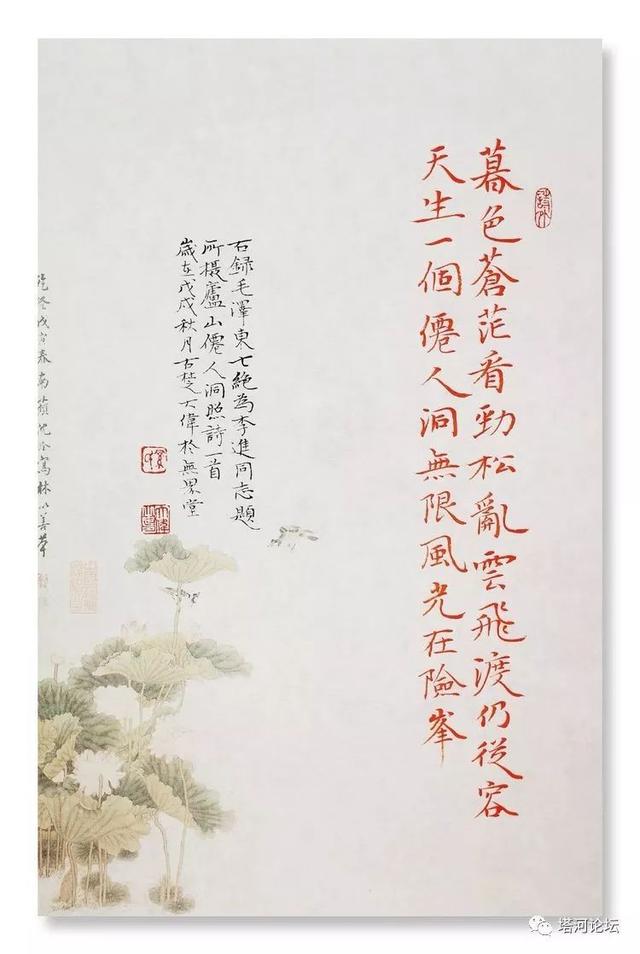 暮色蒼茫看勁松亂雲飛渡仍從容
天生一個僊人洞無限風光在險峯
右録毛澤東七絶為李進同志題
所攝廬山僊人洞照詩一首
歲在戊戌秋月古楚大偉於無界堂
塔河论坛